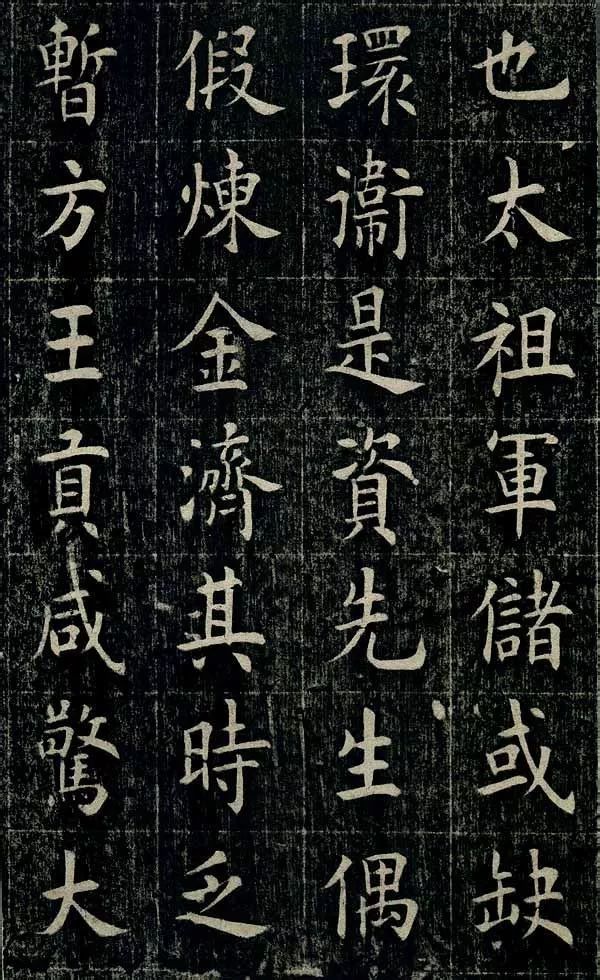 也太祖軍儲或缺
環衞是資先生偶
假煉金濟其時乏
暫方王貢咸驚大